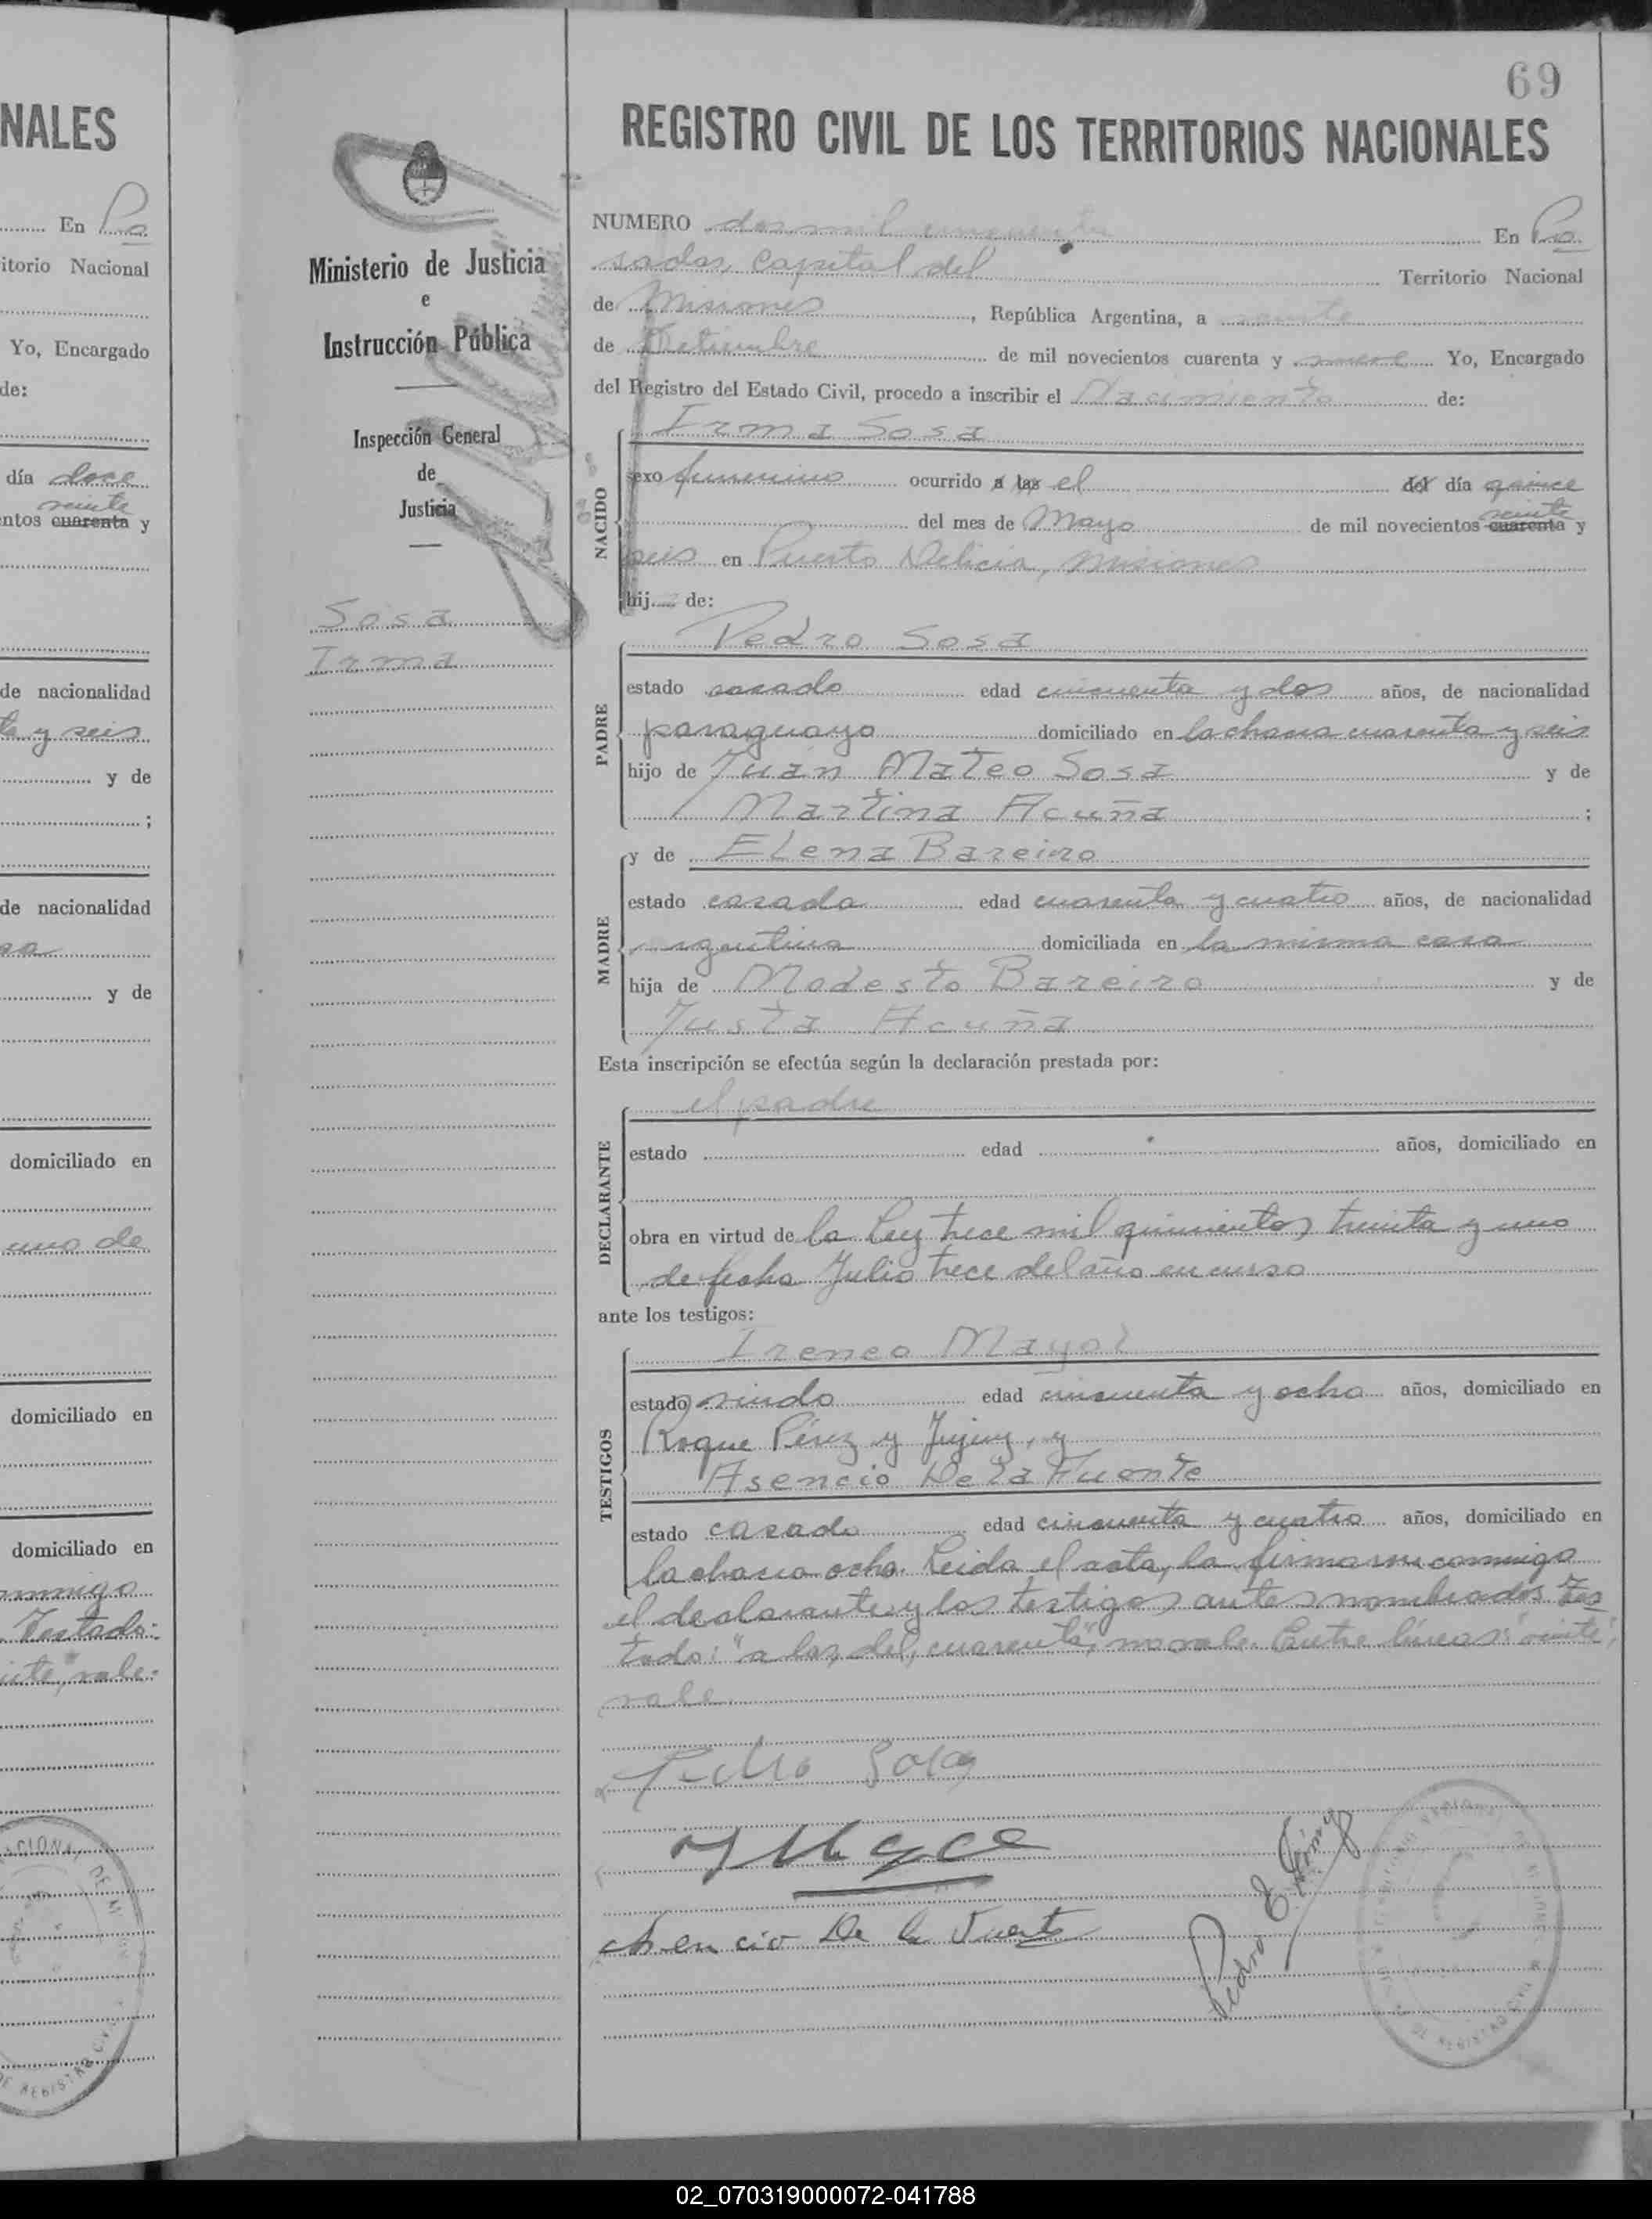 NALES
En Po
itorio Nacional
Yo, Encargado
de:
día doce
veinte
ntos cuarenta y
de nacionalidad
ta y seis
y de
;
de nacionalidad
y de
domiciliado en
uno de
domiciliado en
domiciliado en
conmigo
Testado:
vale.
Ministerio de Justicia
e
Instrucción Pública
Inspección General
de
Justicia
Sosa
Irma
69
REGISTRO CIVIL DE LOS TERRITORIOS NACIONALES
NUMERO dos mil cincuenta En Po
sadas, Capital del Territorio Nacional
de Misiones, República Argentina, a veinte
de Setiembre de mil novecientos cuarenta y nueve Yo, Encargado
del Registro del Estado Civil, procedo a inscribir el Nacimiento de:
NACIDO
Irma Sosa
sexo femenino ocurrido a las el del día quince
veinte
del mes de Mayo de mil novecientos cuarenta y
seis en Puerto Delicia, Misiones
hija de:
PADRE
Pedro Sosa
estado casado edad cincuenta y dos años, de nacionalidad
paraguayo domiciliado en la chacra cuarenta y seis
hijo de Juan Mateo Sosa y de
Martina Acuña ;
MADRE
y de Elena Bareiro
estado casada edad cuarenta y cuatro años, de nacionalidad
argentina domiciliada en la misma casa
hija de Modesto Bareiro y de
Justa Acuña
Esta inscripción se efectúa según la declaración prestada por:
DECLARANTE
el padre
estado edad años, domiciliado en
obra en virtud de la Ley trece mil quinientos treinta y uno
de fecha Julio trece del año en curso
ante los testigos:
TESTIGOS
Ireneo Mayol
estado viudo edad cincuenta y ocho años, domiciliado en
Roque Pérez y Jujuy, y
Asencio De la Fuente
estado casado edad cincuenta y cuatro años, domiciliado en
la chacra ocho. Leida el acta, la firmaron conmigo
el declarante y los testigos antes nombrados. Tes
tado: "a las, del, cuarenta", no vale. Entre líneas: "veinte",
vale.
Pedro Sosa
Asencio De la Fuente
02_070319000072-041788